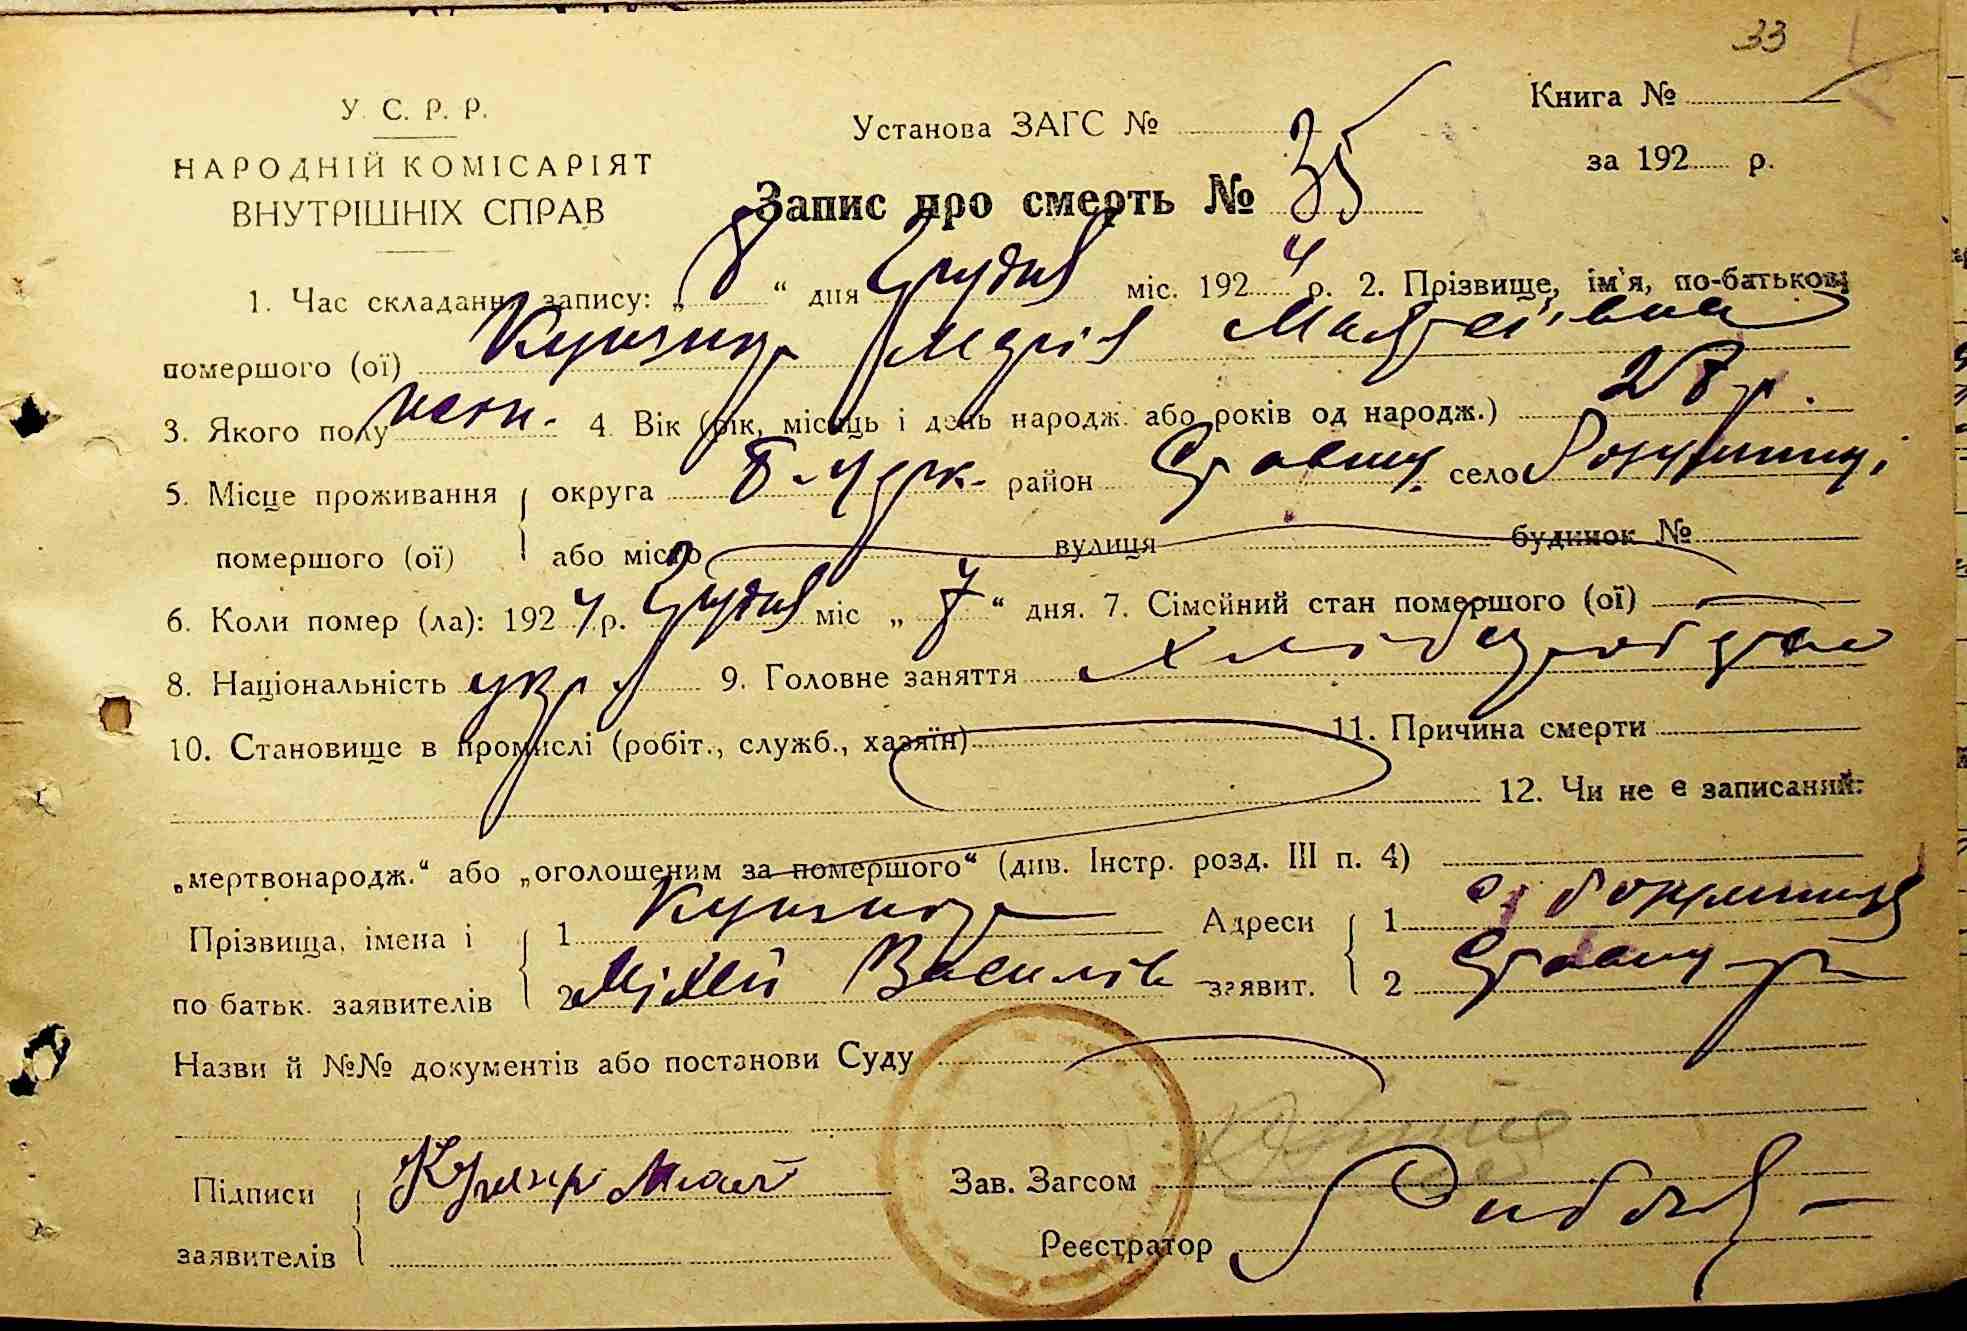 33
У. С. Р. Р.
НАРОДНІЙ КОМІСАРІЯТ
ВНУТРІШНІХ СПРАВ
Установа ЗАГС №
Книга №
за 192 р.
Запис про смерть № 35
1. Час складання запису: „ 8 “ дня Грудня міс. 1924 р. 2. Прізвище, ім'я, по-батькові
помершого (ої) Марія
3. Якого полу жін. 4. Вік (рік, місяць і день народж. або років од народж.) 28 р.
5. Місце проживання округа Б-Церк. район Ставищ. село
помершого (ої) або місто вулиця будинок №
6. Коли помер (ла): 1924 р. Грудня міс „ 7 “ дня. 7. Сімейний стан помершого (ої)
8. Національність укр 9. Головне заняття
10. Становище в промислі (робіт., служб., хазяїн) 11. Причина смерти
12. Чи не є записаний:
„мертвонародж.“ або „оголошеним за помершого“ (див. Інстр. розд. III п. 4)
Прізвища, імена і 1 Адреси 1
по батьк. заявителів 2 Василів заявит. 2
Назви й №№ документів або постанови Суду
Підписи Зав. Загсом
заявителів Реєстратор